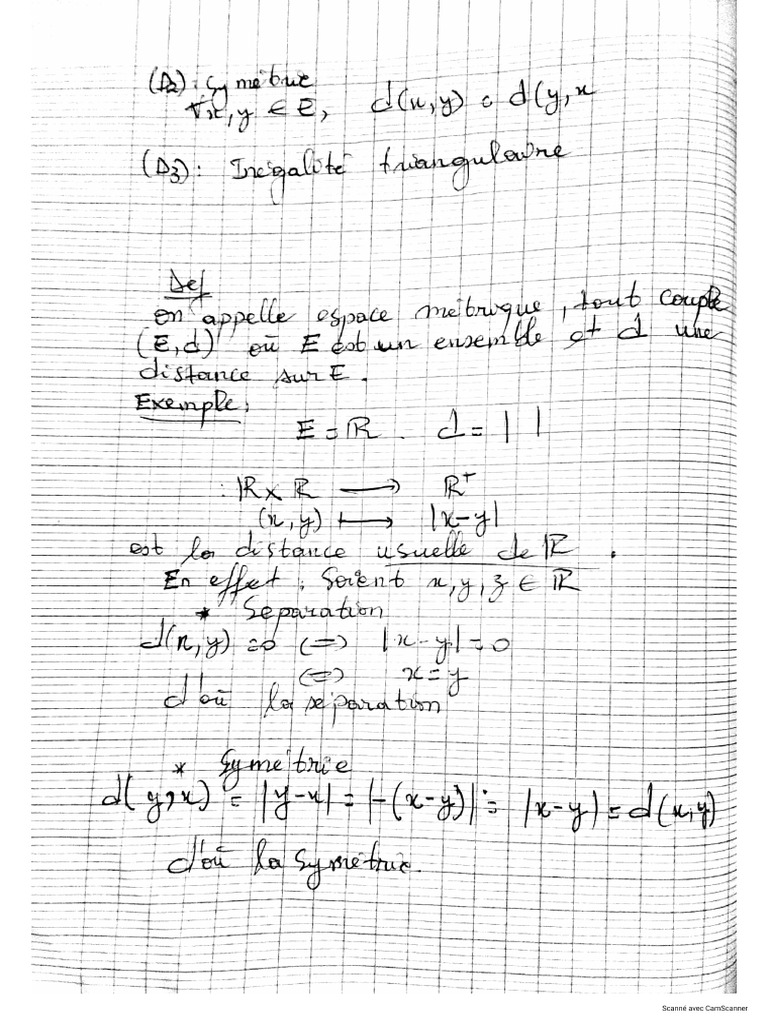 (D2): Symétrie
∀x, y ∈ E, d(x, y) = d(y, x
(D3): Inégalité triangulaire
Def
on appelle espace métrique, tout couple
(E, d) où E est un ensemble et d une
distance sur E.
Exemple:
E = ℝ. d = | |
: ℝ x ℝ ⟶ ℝ⁺
(x, y) ⟼ |x-y|
est la distance usuelle de ℝ.
En effet, Soient x, y, z ∈ ℝ
* Séparation
d(x, y) = 0 ⟺ |x-y| = 0
⟺ x = y
d'où la séparation
* Symétrie
d(y, x) = |y-x| = |-(x-y)| = |x-y| = d(x, y)
d'où la symétrie.
Scanné avec CamScanner